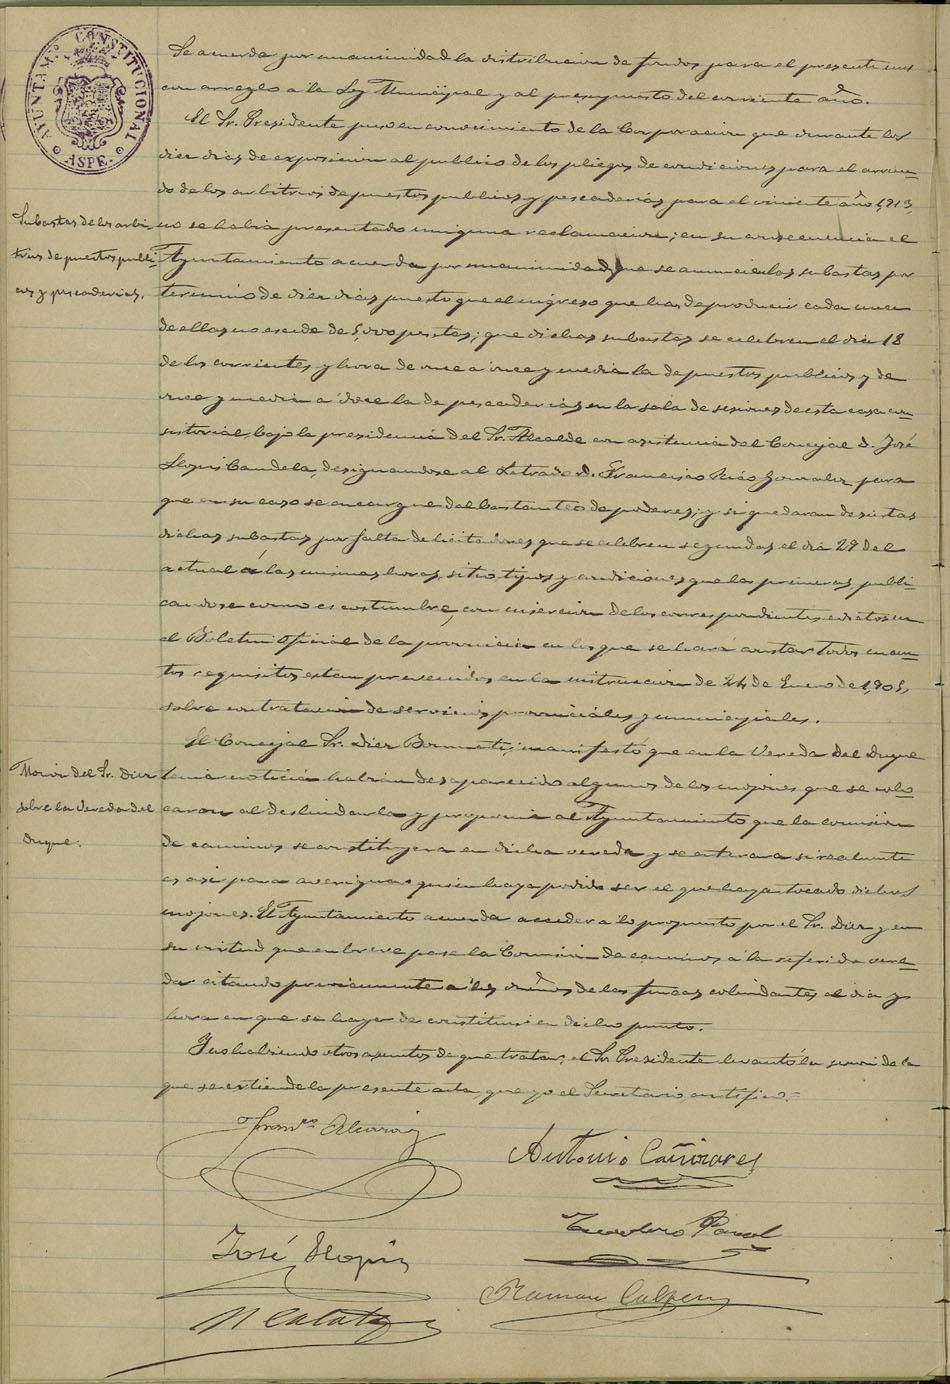 AYUNTAMº CONSTITUCIONAL
ASPE.
Se acuerda por unanimidad la distribucion de fondos para el presente mes
con arreglo á la Ley Municipal y al presupuesto del corriente año.
El Sr. Presidente puso en conocimiento de la Corporacion que durante los
diez dias de exposicion al publico de los pliegos de condiciones para el arrien-
do de los arbitrios de puestos publicos y pescaderias para el viniente año 1,913,
Subastas de los arbi-
trios de puestos publi-
cos y pescaderias.
no se habia presentado ninguna reclamacion; en su consecuencia el
Ayuntamiento acuerda por unanimidad que se anuncien las subastas por
termino de diez dias puesto que el ingreso que han de producir cada una
de ellas no escede de 5,000 pesetas; que dichas subastas se celebren el dia 18
de los corrientes y hora de once a once y media la de puestos publicos y de
once y media a doce la de pescaderias en la sala de sesiones de esta casa con-
sistorial, bajo la presidencia del Sr. Alcalde con asistencia del Concejal D. José
Llopis Candela, designandose al Letrado D. Francisco Rico Gonzalez para
que en su caso se encargue del bastanteo de poderes; y si quedaran desiertas
dichas subastas por falta de licitadores que se celebren segundas el dia 29 del
actual á las mismas horas, sitio, tipos y condiciones que las primeras, publi-
candose como es costumbre, con insercion de los correspondientes edictos en
el Boletin Oficial de la provincia en los que se hará constar todos cuan-
tos requisitos estan prevenidos en la instruccion de 24 de Enero de 1,905,
sobre contratacion de servicios provinciales y municipales.
El Concejal Sr. Diez manifestó que en la Vereda del Duque
Mocion del Sr. Diez
sobre la Vereda del
Duque.
tenia noticia habian desaparecido algunos de los mojones que se colo-
caron al deslindarla y proponia al Ayuntamiento que la comision
de caminos se constituyera en dicha vereda y se enterara si realmente
es asi para averiguar quien haya podido ser el que haya tocado dichos
mojones. El Ayuntamiento acuerda acceder a lo propuesto por el Sr. Diez y en
su virtud que en breve pase la Comision de caminos á la referida vere-
da citando previamente a los dueños de las fincas colindantes el dia y
hora en que se haya de constituir en dicho punto.
Y no habiendo otros asuntos de que tratar, el Sr. Presidente levantó la sesion de la
que se estiende la presente acta, que yo el Secretario certifico.=
Franco Alcaraz
Antonio Cañizares
Teodoro Pavol
José Llopis
Ramon Calpena